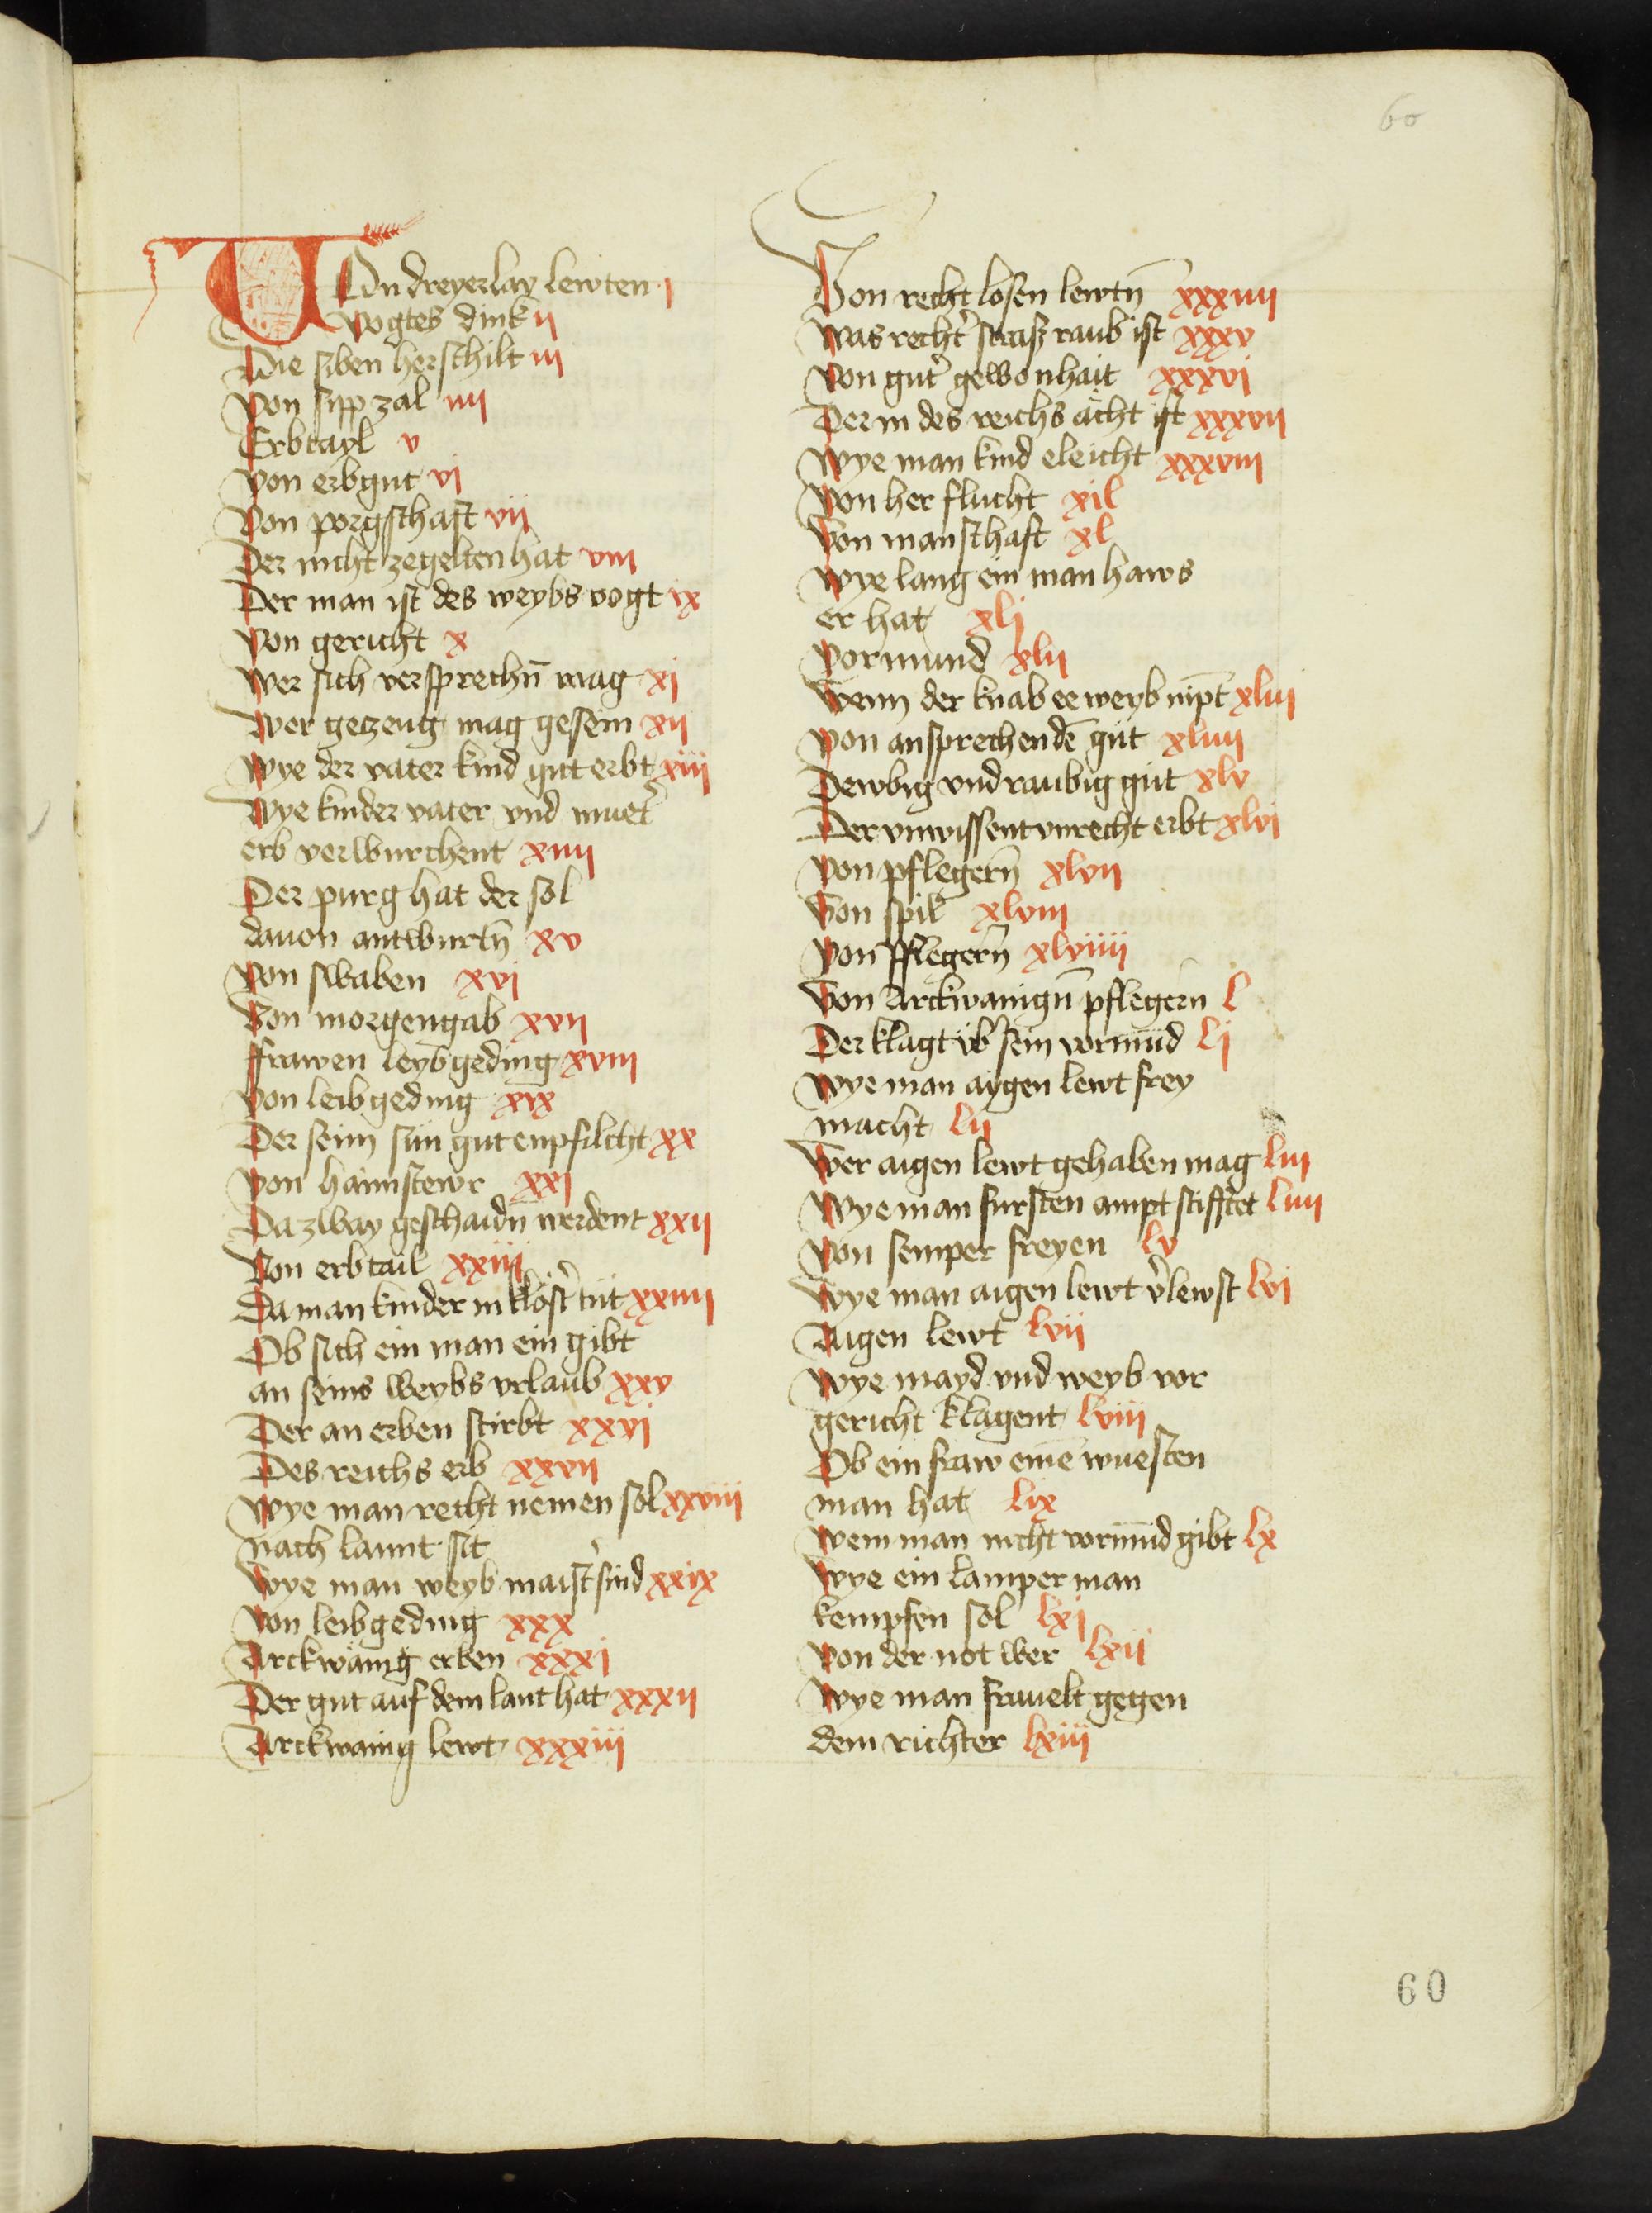 60
VOn dreyerlay lewten j
vogtes dink ij
Die siben herschilt iij
Von sipp zal iiij
Erbtayl v
Von erbgut vj
Von porgschaft vij
Der nicht zegelten hat viij
Der man ist des weybs vogt ix
Von gericht x
Wer sich versprechn̄ mag xj
Wer gezeug mag gesein xij
Wye der vater kind gut erbt xiij
Wye kinder vater vnd muet̉
erb verwurchent xiiij
Der purg hat der sol
dauon antwurtn̄ xv
Von swaben xvj
Von morgengab xvij
ffrawen leybgeding xviij
Von leibgeding xix
Der seim sun gut enpfilcht xx
Von haimstewr xxj
Da zway geschaidn̄ werdent xxij
Von erbtail xxiij
Da man kinder in klöst̉ tüt xxiiij
Ob sich ein man ein gibt
an seins weybs vrlaub xxv
Der an erben stirbt xxvj
Des reichs erb xxvij
Wye man recht nemen sol xxviij
nach lannt sit
Wye man weyb maist̉ sind xxix
Von leibgeding xxx
Arckwänig erben xxxj
Der gut auf dem lant hat xxxij
Arckwänig lewt xxxiij
Von recht losen lewtn̄ xxxiiij
Was recht̉ strasz raub ist xxxv
Von gut̉ gewonhait xxxvj
Der in des reichs ächt ist xxxvij
Wye man kind eleicht xxxviij
Von her flucht xil
Von manschaft xl
Wye lang ein man haws
er hat xlj
Vormund xlij
Wenn der knab ee weyb nipt xliij
Von ansprechendē güt xliiij
Dewbig vnd raubig güt xlv
Der vnwissent vnrecht erbt xlvj
Von pflegern̄ xlvij
Von spil xlviij
Von pflegern̄ xlviiij
Von Arckwanign̄ pflegern l
Der klagt vb̉ sein vormūd lj
Wye man aygen lewt frey
macht lij
Wer aigen lewt gehaben mag liij
Wye man fursten ampt stifftet liiij
Von semper freyen lv
Wye man aigen lewt v̉lewst lvj
Aigen lewt lvij
Wye mayd vnd weyb vor
gericht klagent lviij
Ob ein fraw einē wuesten
man hat lix
Wem man nicht vormūd gibt lx
Wye ein lamper man
kempfen sol lxj
Von der not wer lxij
Wye man frauelt gegen
dem richter lxiij
60